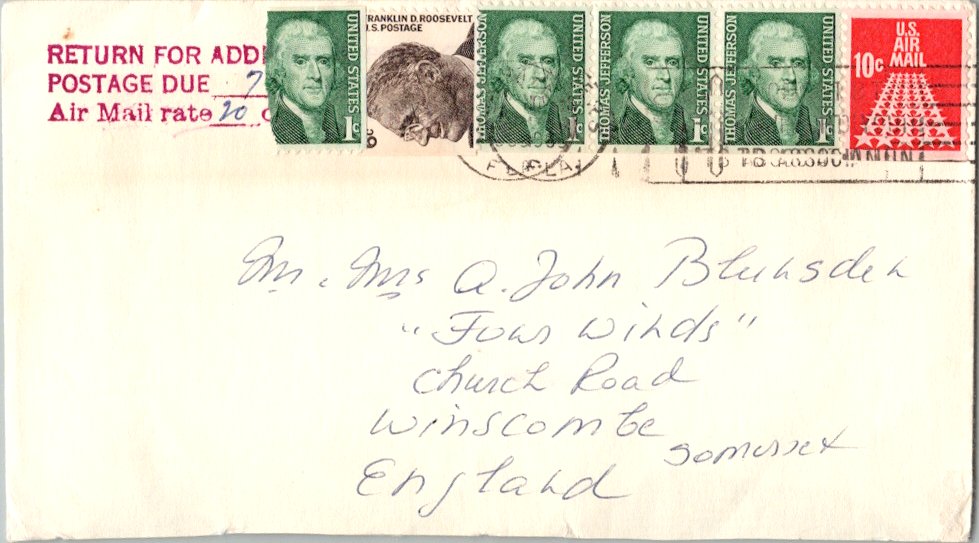 RETURN FOR ADDI
POSTAGE DUE 7
Air Mail rate 20 c
UNITED STATES
1c
FRANKLIN D. ROOSEVELT
U.S. POSTAGE
6c
THOMAS JEFFERSON
UNITED STATES
1c
THOMAS JEFFERSON
UNITED STATES
1c
THOMAS JEFFERSON
UNITED STATES
1c
U.S.
AIR
MAIL
10c
FLA
Mr. Mrs A. John Blunsden
"Four Winds"
Church Road
Winscombe
Somerset
England